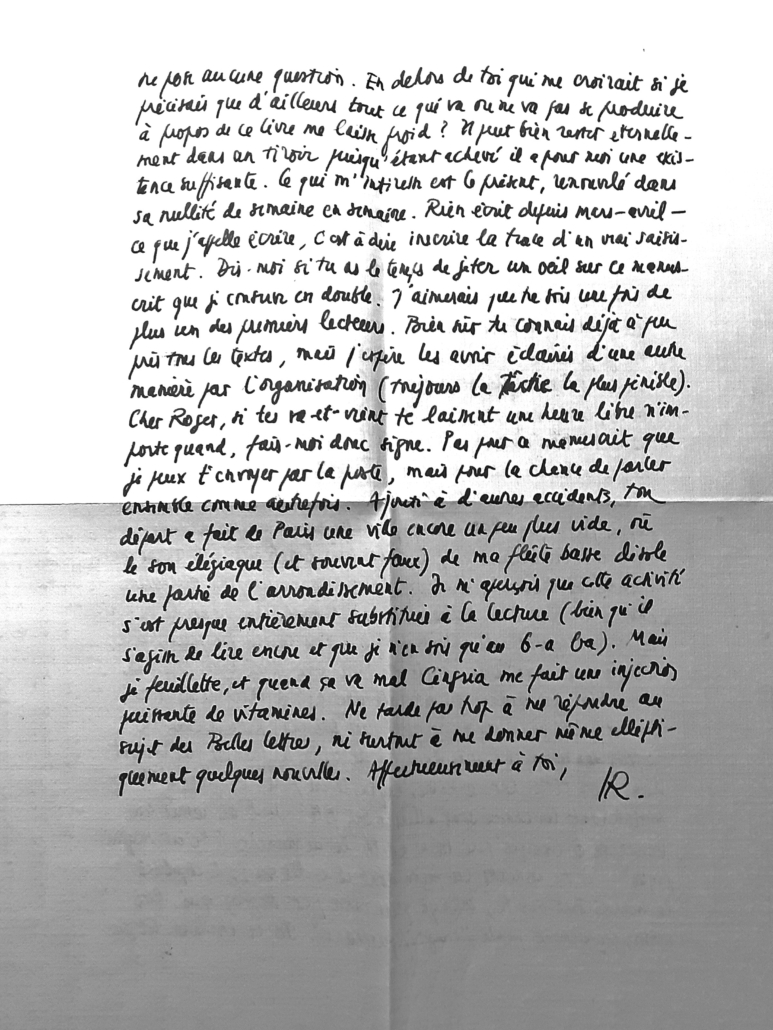 ne pose aucune question. En dehors de toi qui me croirait si je
précisais que d'ailleurs tout ce qui va ou ne va pas se produire
à propos de ce livre me laisse froid ? Il peut bien rester eternelle-
ment dans un tiroir puisqu'étant achevé il a pour moi une exis-
tence suffisante. Ce qui m'intéresse est le présent, renouvelé dans
sa nullité de semaine en semaine. Rien écrit depuis mars-avril —
ce que j'appelle écrire, c'est à dire inscrire la trace d'un vrai saisis-
sement. Dis-moi si tu as le temps de jeter un oeil sur ce manus-
crit que je conserve en double. J'aimerais que tu sois une fois de
plus un des premiers lecteurs. Bien sûr tu connais déjà à peu
près tous les textes, mais j'espère les avoir éclairés d'une autre
manière par l'organisation (toujours la tâche la plus pénible).
Cher Roger, si tes va-et-vient te laissent une heure libre n'im-
porte quand, fais-moi donc signe. Pas pour ce manuscrit que
je peux t'envoyer par la poste, mais pour la chance de parler
ensemble comme autrefois. Ajouté à d'autres accidents, ton
départ a fait de Paris une ville encore un peu plus vide, où
le son élégiaque (et souvent faux) de ma flûte basse désole
une partie de l'arrondissement. Je m'aperçois que cette activité
s'est presque entièrement substituée à la lecture (bien qu'il
s'agisse de lire encore et que je n'en sois qu'au b-a ba). Mais
je feuillette, et quand ça va mal Cingria me fait une injection
puissante de vitamines. Ne tarde pas trop à me répondre au
sujet des Belles lettres, ni surtout à me donner même ellipti-
quement quelques nouvelles. Affectueusement à toi,